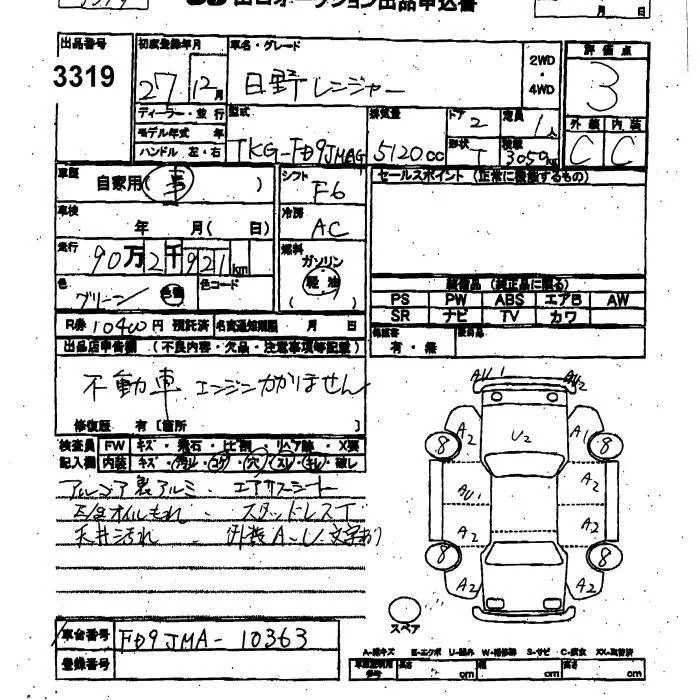 オークション出品申込書
月 日
出品番号 初度登録年月 車名・グレード 評価点
3319 27年12月 日野レンジャー 2WD・4WD 3
ディーラー・並行 型式 排気量 ドア 2 定員 1人 外装 内装
モデル年式 年 TKG-FD9JMAG 5120cc 形状 T 積載 3050kg C C
ハンドル 左・右
車歴 自家用(事) シフト F6 セールスポイント (正常に機能するもの)
車検 年 月( 日) 冷房 AC
走行 90万2千921km 燃料 ガソリン 軽油 ( )
色 グリーン 色替 色コード
装備品 (純正品に限る)
PS PW ABS エアB AW
SR ナビ TV カワ
R券 10400円 預託済 名変通知期限 月 日
保証書 有・無
出品店申告欄 (不良内容・欠品・注意事項等記載)
不動車 エンジンかかりません
修復歴 有 [箇所 ]
検査員 FW キズ・飛石・ヒビ割・リペア跡・X要
記入欄 内装 キズ・汚れ・コゲ・穴・スレ・キレ・破レ
アルコア製アルミ・エアサスシート
E/Gオイルもれ・スタッドレスT
天井汚れ 外装A〜U 文字あり
AU1 AU2
A2 U2 A1
8 8
AU1 A2
A2 A2
8 8
A2 A2
スペア
車台番号 FD9JMA-10363
登録番号
A-線キズ E-エクボ U-凹み W-補修跡 S-サビ C-腐食 XX-交換済
長さ cm 幅 cm 高さ cm